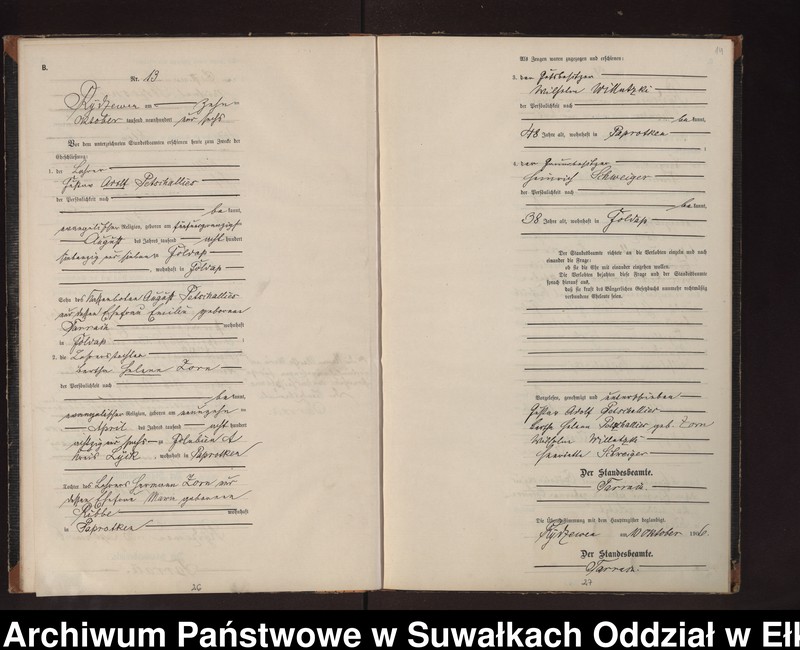 B.
Nr. 13
Rydzewen am zehn
Oktober tausend neunhundert vor sechs
Vor dem unterzeichneten Standesbeamten erschienen heute zum Zwecke der
Eheschließung:
1. der Lehrer
Gustav Adolf Petschallies
der Persönlichkeit nach
be kannt,
evangelischer Religion, geboren am fünfundzwanzigsten
August des Jahres tausend acht hundert
siebenzig und sieben zu Goldap
, wohnhaft in Goldap
Sohn des August Petschallies
und dessen Ehefrau Emilie geborenen
wohnhaft
in Goldap
2. die Lehrerstochter
Bertha Helene Zorn
der Persönlichkeit nach
be kannt,
evangelischer Religion, geboren am neunzehn
April des Jahres tausend acht hundert
achtzig und sechs zu
Kreis Lyck, wohnhaft in Paprotken
Tochter des Lehrers Hermann Zorn und
dessen Ehefrau Maria geborenen
Ribbe wohnhaft
in Paprotken
26
14
Als Zeugen waren zugezogen und erschienen:
3. der Gutsbesitzer
Wilhelm Willutzki
der Persönlichkeit nach
be kannt,
48 Jahre alt, wohnhaft in Paprotken
4. der
Heinrich Schweiger
der Persönlichkeit nach
be kannt,
38 Jahre alt, wohnhaft in Goldap
Der Standesbeamte richtete an die Verlobten einzeln und nach
einander die Frage:
ob sie die Ehe mit einander eingehen wollen.
Die Verlobten bejahten diese Frage und der Standesbeamte
sprach hierauf aus,
daß sie kraft des Bürgerlichen Gesetzbuchs nunmehr rechtmäßig
verbundene Eheleute seien.
Vorgelesen, genehmigt und unterschrieben
Gustav Adolf Petschallies
Bertha Helene Petschallies geb. Zorn
Wilhelm Willutzki
Schweiger
Der Standesbeamte.
Die Übereinstimmung mit dem Hauptregister beglaubigt.
Rydzewen am 10 Oktober 1906
Der Standesbeamte.
27
Archiwum Państwowe w Suwałkach Oddział w Ełk